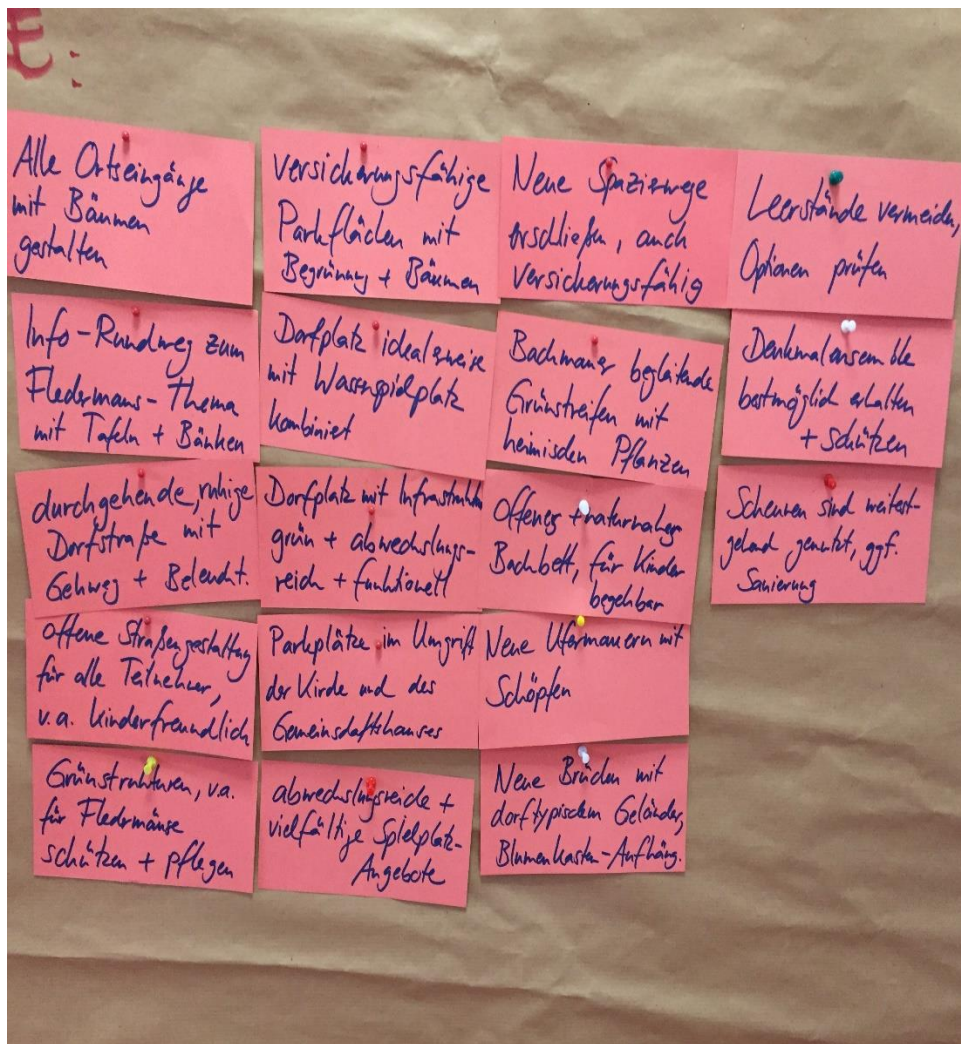 E:
Alle Ortseingänge
mit Bäumen
gestalten
Info-Rundweg zum
Fledermaus-Thema
mit Tafeln + Bänken
durchgehende, ruhige
Dorfstraße mit
Gehweg + Beleucht.
offene Straßengestaltung
für alle Teilnehmer,
v.a. kinderfreundlich
Grünstrukturen, v.a.
für Fledermäuse
schützen + pflegen
versickerungsfähige
Parkflächen mit
Begrünung + Bäumen
Dorfplatz idealerweise
mit Wasserspielplatz
kombiniert
Dorfplatz mit Infrastruktur
grün + abwechslungs-
reich + funktionell
Parkplätze im Umgriff
der Kirche und des
Gemeinschaftshauses
abwechslungsreiche +
vielfältige Spielplatz-
Angebote
Neue Spazierwege
erschließen, auch
versickerungsfähig
Bachmauer begleitende
Grünstreifen mit
heimischen Pflanzen
Offenes + naturnahes
Bachbett, für Kinder
begehbar
Neue Ufermauern mit
Schöpfen
Neue Brücken mit
dorftypischem Geländer,
Blumenkasten-Aufhäng.
Leerstände vermeiden,
Optionen prüfen
Denkmalensemble
bestmöglich erhalten
+ schützen
Scheunen sind weitest-
gehend genutzt, ggf.
Sanierung